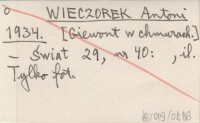 o WIECZOREK Antoni
1934. [Giewont w chmurach.]
= Świat 29, nr 40: , il.
Tylko fot.